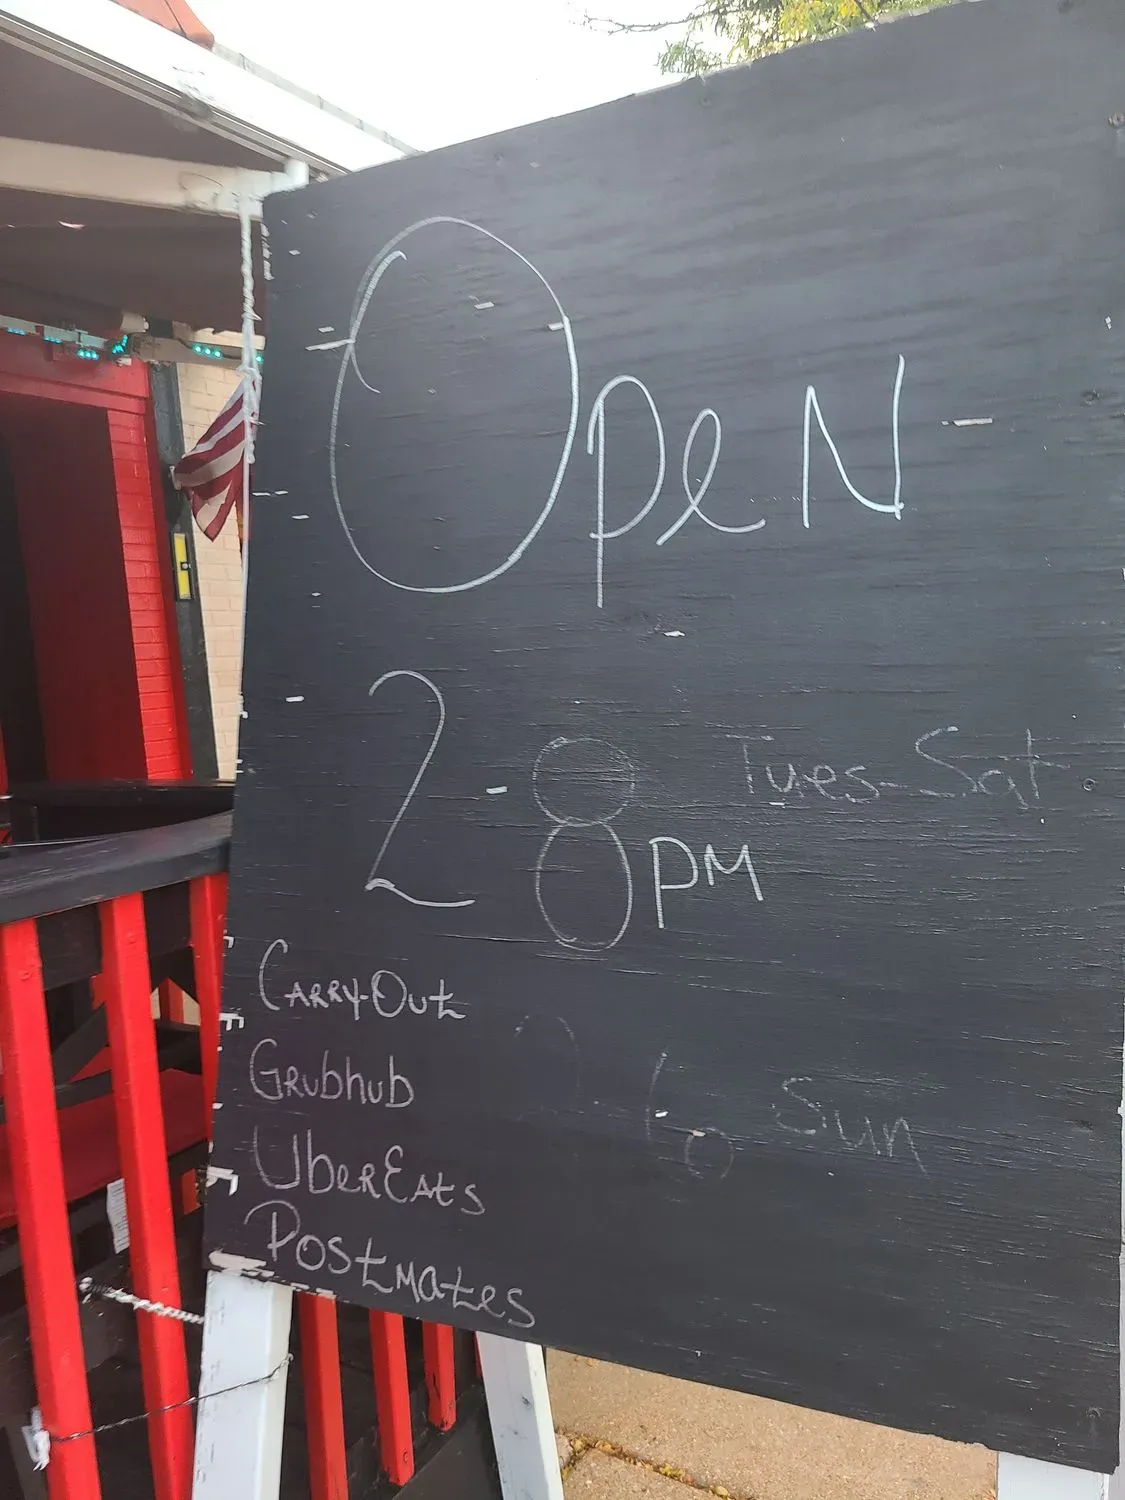 Open
2-8PM Tues-Sat
Carry-Out
Grubhub
6 Sun
UberEats
Postmates